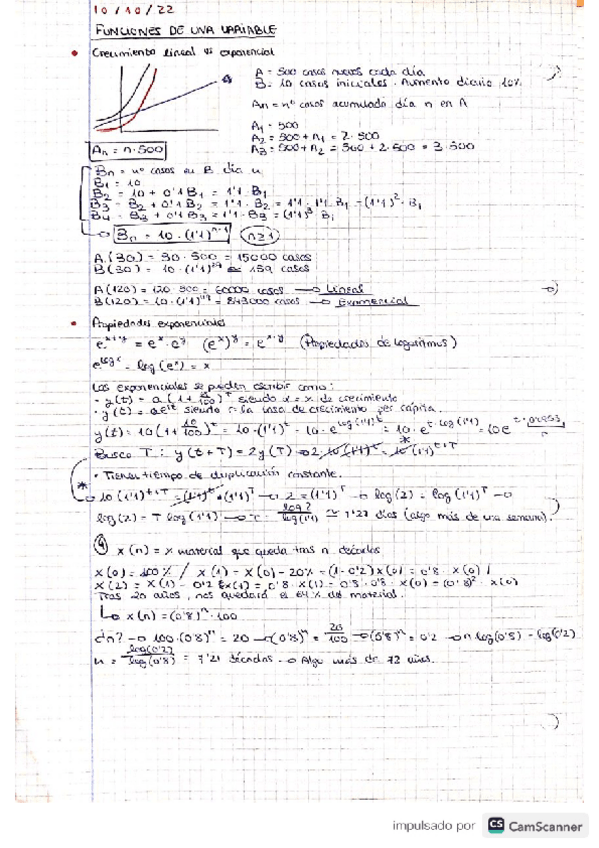 10/10/22
FUNCIONES DE UNA VARIABLE
• Crecimiento lineal vs exponencial
A = 500 casos nuevos cada día
B = 10 casos iniciales. Aumento diario 10%.
An = nº casos acumulado día n en A
A1 = 500
A2 = 500 + A1 = 2·500
A3 = 500 + A2 = 500 + 2·500 = 3·500
An = n·500
Bn = nº casos en B día n
B1 = 10
B2 = 10 + 0'1 B1 = 1'1·B1
B3 = B2 + 0'1 B2 = 1'1·B2 = 1'1·1'1·B1 = (1'1)²·B1
B4 = B3 + 0'1 B3 = 1'1·B3 = (1'1)³·B1
Bn = 10·(1'1)ⁿ⁻¹ (n≥1)
A(30) = 30·500 = 15000 casos
B(30) = 10·(1'1)²⁹ ≃ 159 casos
A(120) = 120·500 = 60000 casos → Lineal
B(120) = 10·(1'1)¹¹⁹ = 843000 casos → Exponencial
• Propiedades exponenciales
eˣ⁺ʸ = eˣ·eʸ (eˣ)ʸ = eˣ·ʸ (Propiedades de logaritmos)
e^log x = log(eˣ) = x
Las exponenciales se pueden escribir como:
siendo α = % de crecimiento
siendo r la tasa de crecimiento per cápita.
y(t) = 10(1+10/100)ᵗ = 10·(1'1)ᵗ = 10·e^log(1'1)ᵗ = 10·e^t·log(1'1) = 10e
Busco T: y(t+T) = 2y(T) → 2·10(1'1)ᵗ = 10(1'1)ᵗ⁺ᵀ
• Tienen tiempo de duplicación constante.
10(1'1)ᵗ⁺ᵀ = (1'1)ᵗ·(1'1)ᵀ → 2 = (1'1)ᵀ → log(2) = log(1'1)ᵀ →
log(2) = T log(1'1) → T = log 2/log(1'1) ≃ 7'27 días (algo más de una semana).
④ x(n) = x material que queda tras n décadas
x(0) = 100% / x(1) = x(0) - 20% = (1-0'2)x(0) = 0'8·x(0)
x(2) = x(1) - 0'2·x(1) = 0'8·x(1) = 0'8·0'8·x(0) = (0'8)²·x(0)
Tras 20 años, nos quedará el 64% del material.
↳ x(n) = (0'8)ⁿ·100
¿n? → 100·(0'8)ⁿ = 20 → (0'8)ⁿ = 20/100 → (0'8)ⁿ = 0'2 → n log(0'8) = log(0'2)
n = log(0'2)/log(0'8) = 7'21 décadas → Algo más de 72 años.
impulsado por CS CamScanner